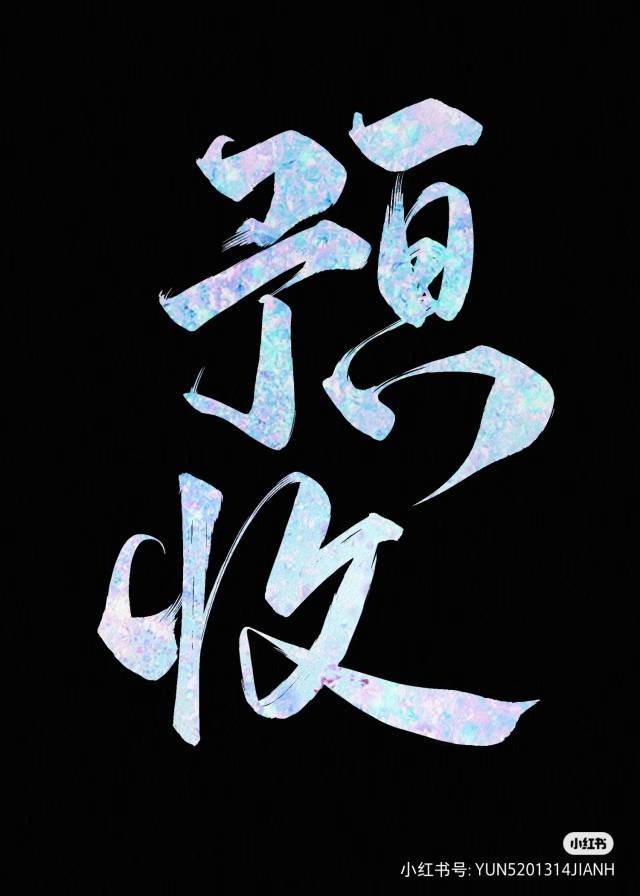 预
收
小红书
小红书号: YUN5201314JIANH